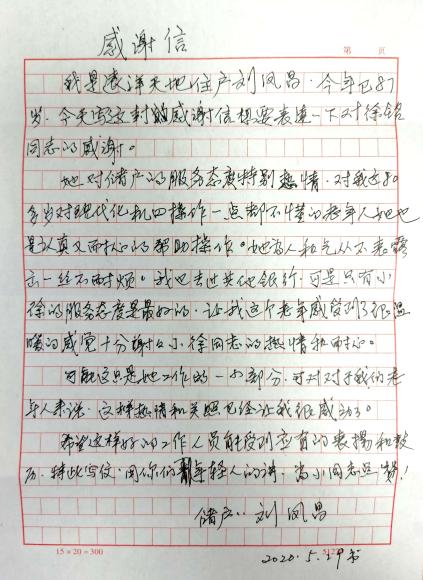 感谢信
第 页
我是远洋天地住户刘凤昌.今年已87
岁.今天写这封的感谢信想要表达一下对徐铭
同志的感谢。
她对储户的服务态度特别热情.对我这80
多岁对现代化机四操作一点都不懂的老年人她也
是认真又耐心的帮助操作。她为人和气从不表露
出一丝不耐烦。我也去过其他银行.可是只有小
徐的服务态度是最好的.让我这个老年感受到了很温
暖的感觉十分谢谢小徐同志的热情和耐心。
可能这只是她工作的一小部分.可对对于我们老
年人来说.这样热情和关照已经让我很感动了。
希望这样好的工作人员能受到应有的表扬和鼓
历.特此写信.用你们年轻人的讲.为小同志点赞!
储户:刘凤昌
15×20=300
2020.5.29书